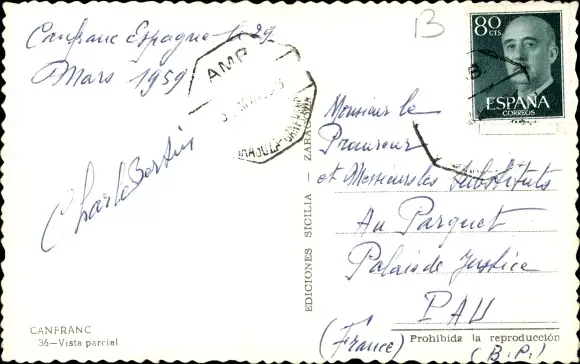 Canfranc Espagne le 29
Mars 1959
Charle Bertin
13
80
CTS
ESPAÑA
CORREOS
AMB
ZARAGOZA-CANFRANC
Monsieur le
Procureur
et Messieurs les Substituts
Au Parquet
Palais de Justice
PAU
(France)
(B.P.)
EDICIONES SICILIA - ZARAGOZA
CANFRANC
36—Vista parcial
Prohibida la reproducción